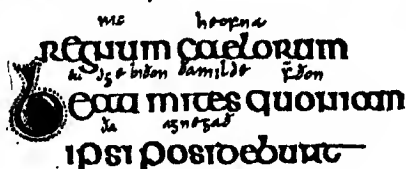 heofna
regnum caelorum
biðon ðamilde
Beati mites quoniam
ða agnegað
ipsi posidebunt